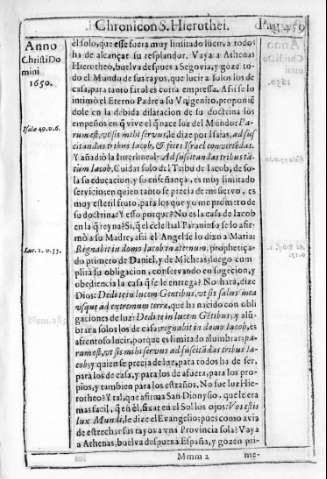 Chronicon S. Hierothei. Pag. 459
Anno
Christi Do
mini
1650.
el solo, que esse fuera muy limitado luciera, a todos
ha de alcançar su esplendor. Vaya a Athenas
Hierotheo, buelva despues a Segovia, y goze to
do el Mundo de sus rayos, que luzir a solos los de
casa, para tanto farol es corta empressa. Assi se lo
intimò el Eterno Padre a su Vnigenito, proponiẽ
dole en la debida dilatacion de su doctrina los
empeños en q̃ vive el q̃ nace Sol del Mundo: Pa-
Isaiæ 49. v. 6.
rum est, vt sis mihi servus, le dize por Isaias, ad sus
citandas tribus Iacob, & fæces Israel convertẽdas.
Y añadiò la Interlineal: Ad suscitandas tribus tã
tùm Iacob, Cuidar solo del Tribu de Iacob, de so-
la su educacion, y su enseñança, es muy limitado
servicio; en quien tanto se precia de mi siervo, es
muy esteril fruto, para los que yo me prometo de
su doctrina? Y esso porque? No es la casa de Iacob
en la q̃ reyna? Si, q̃ el celestial Paraninfo se lo afir
mò a su Madre, assi el Angel se lo dixo a Maria:
Luc. 1. v. 33.
Regnabit in domo Iacob in æternum, prophetiça-
do primero de Daniel, y de Micheas; luego cum
plirà su obligacion, conservando en sugecion, y
obediencia la casa q̃ se le entrega? No harà, dize
Dios: Dedi te in lucem Gentibus, vt sis salus mea
vsque ad extremum terræ, que ha nacido con obli
gaciones de luz: Dedi te in lucem Gẽtibus; y alũ-
brar a solos los de casa, regnabit in domo Iacob, es
afrentoso lucir, porque es limitado alumbrar: pa-
rum est, vt sis mihi servus ad suscitãdas tribus Ia-
cob; y quien se precia de luz, para todos ha de ser,
para los de casa, y para los de afuera, para los pro-
pios, y tambien para los estraños. No fue luz Hie-
rotheo? Y tal, que afirma San Dionysio, que le era
mas facil, q̃ en èl, fixar en el Sol los ojos: Vos estis
lux Mundi, le dize el Evangelio; pues como avia
de estrechar sus rayos a vna Provincia sola? Vaya
a Athenas, buelva despues a España, y gozen pri-
Mmm 2
me-